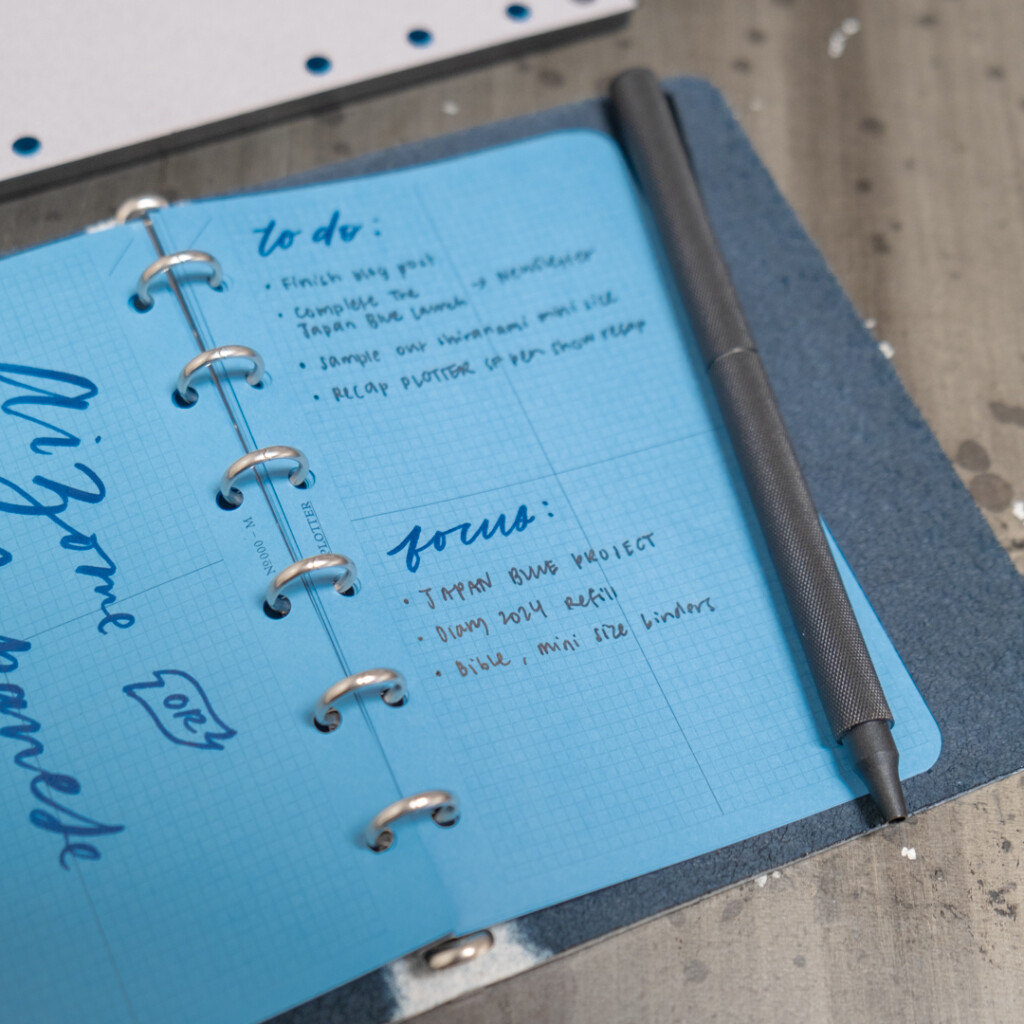 to do:
• Finish blog post
• Complete The
Japan Blue Launch → Newsletter
• sample out shiranami mini size
• RECAP PLOTTER SF pen show recap
focus:
• JAPAN BLUE PROJECT
• Diary 2024 Refill
• Bible, mini size binders
PLOTTER
Nº000-M
Aizome
OR